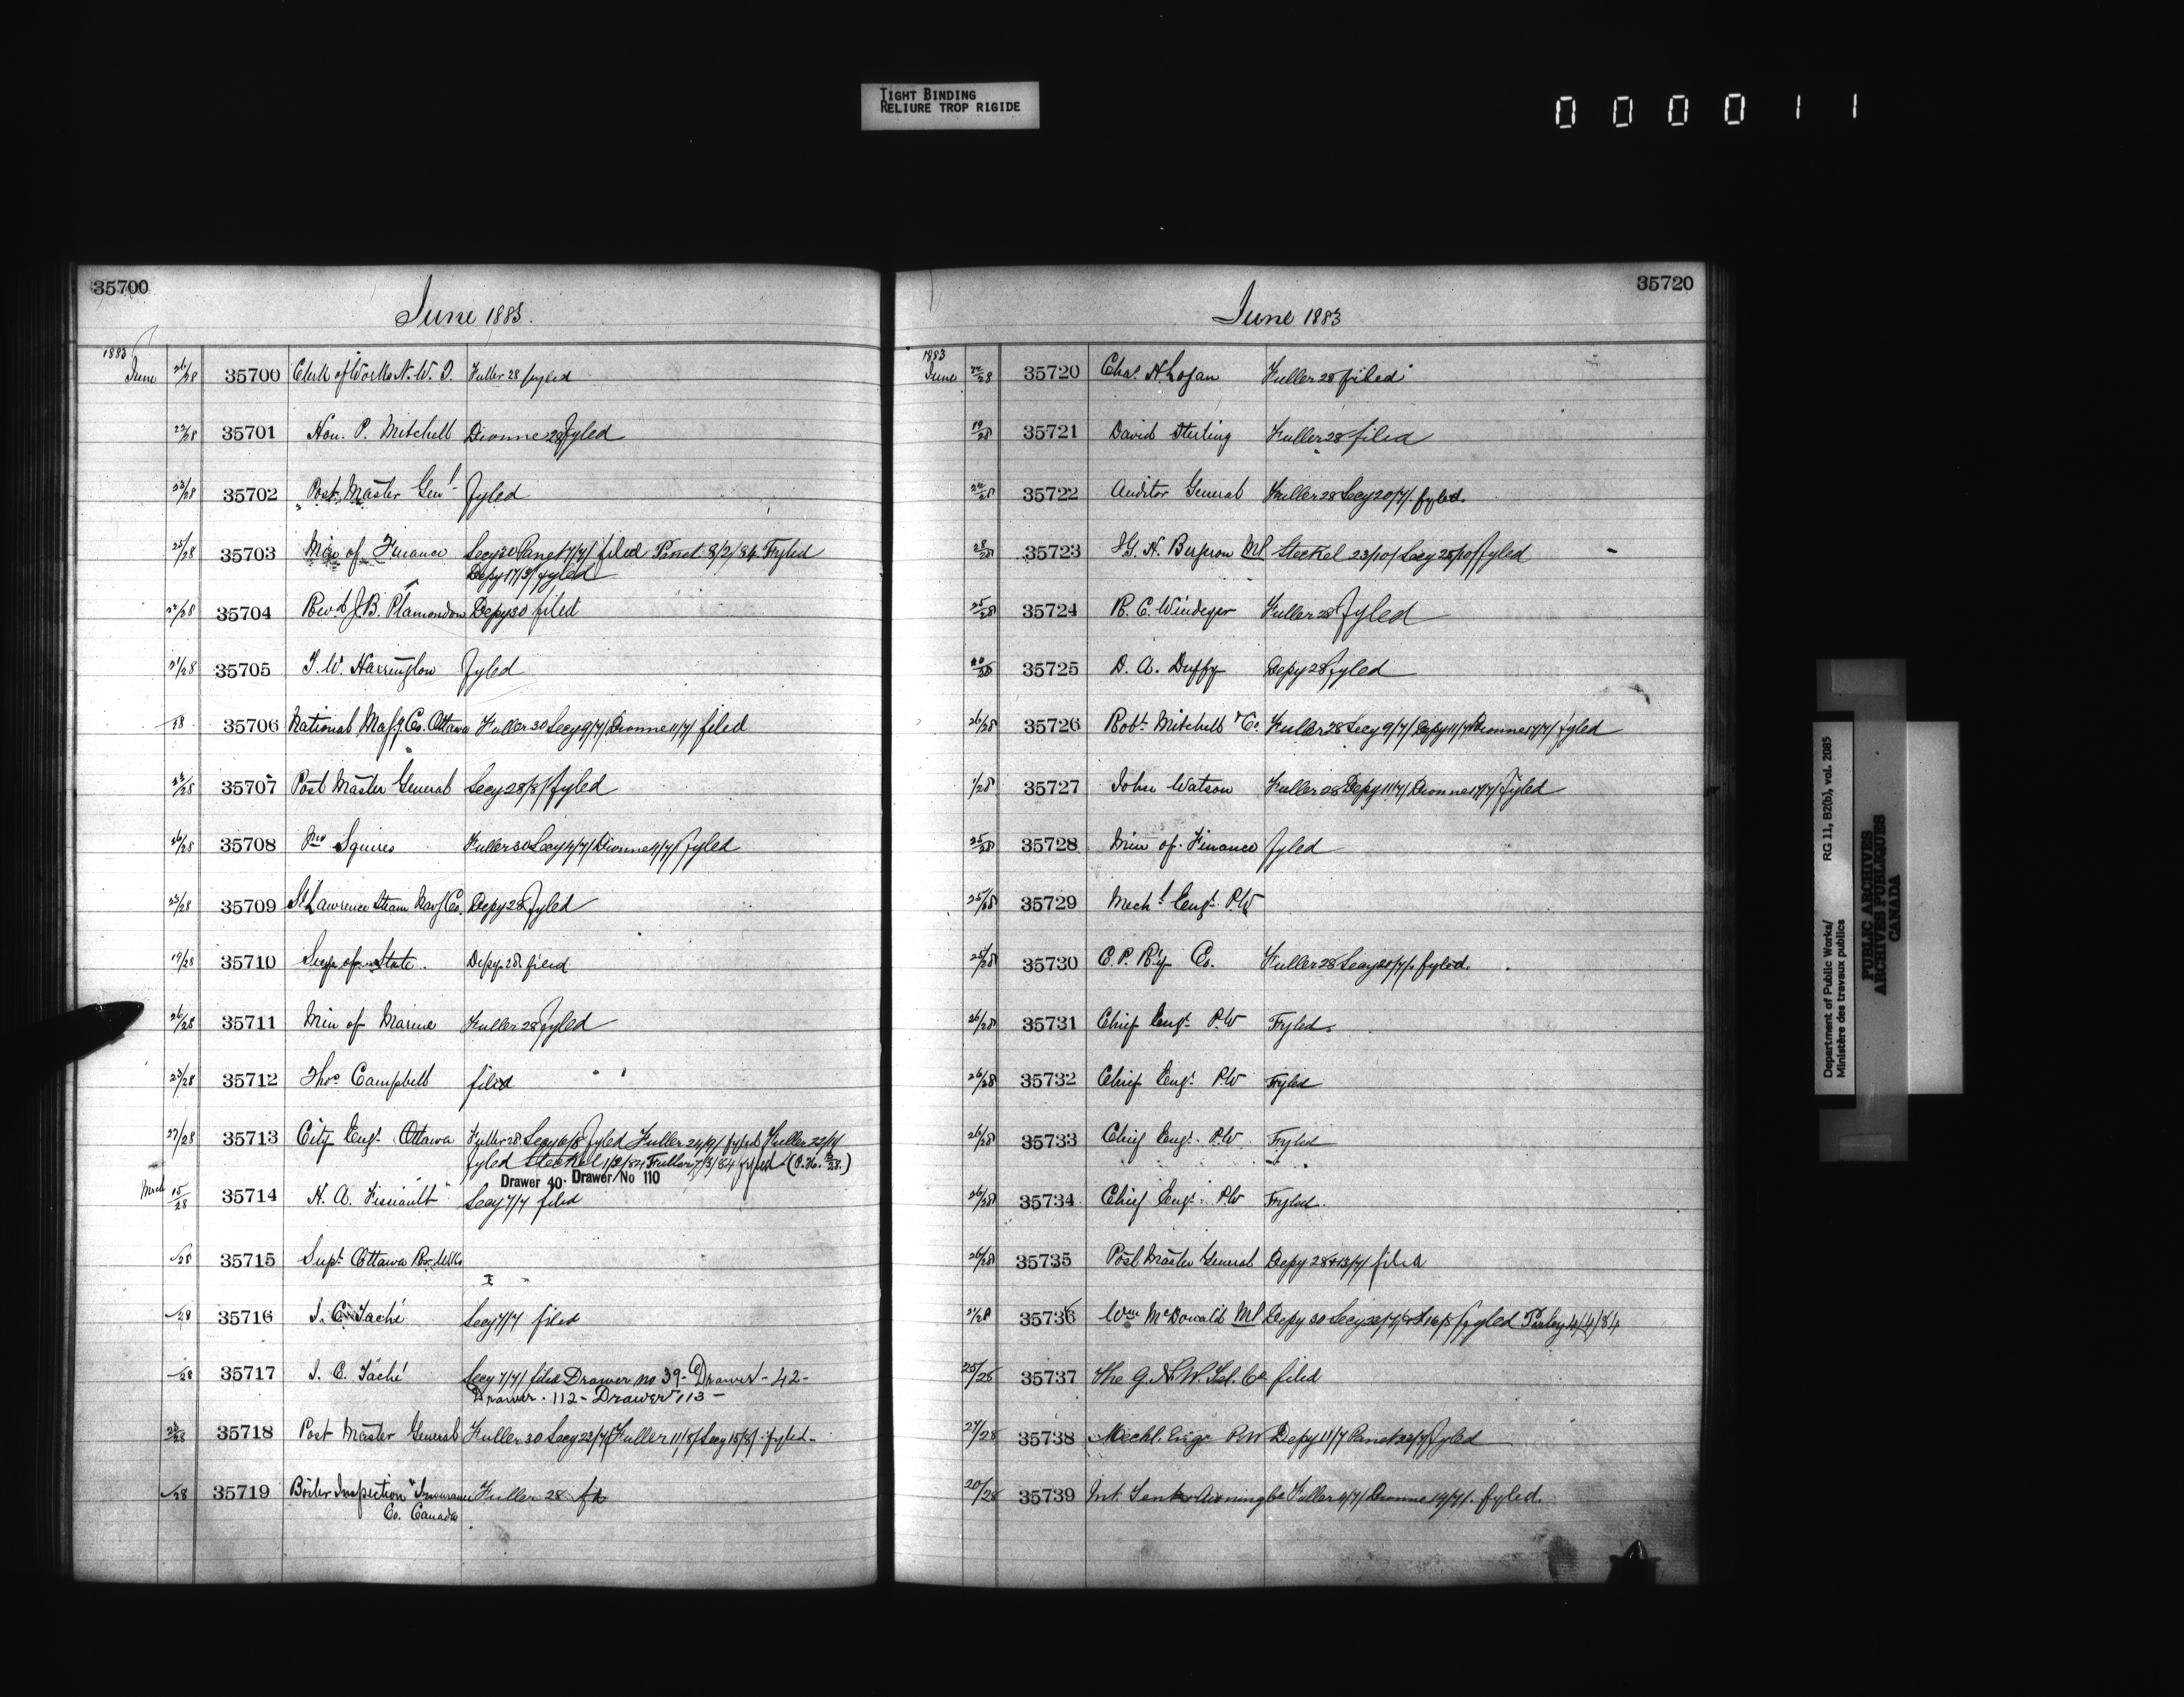 TIGHT BINDING
RELIURE TROP RIGIDE
000011
35700
June 1883.
1883
June 26/28 35700 Clerk of Works N. W. T. Fuller 28 fyled
22/28 35701 Hon. P. Mitchell Dionne 28 fyled
23/28 35702 Post Master Genl. fyled
25/28 35703 Min of Finance Secy 30 Panet 7/7/ filed Panet 8/2/84 Fyled
Depy 17/3/ fyled
22/28 35704 Revd J. B. Plamondon Depy 30 filed
21/28 35705 T. W. Harrington fyled
/28 35706 National Mafg. Co. Ottawa Fuller 30 Secy 9/7/ Dionne 11/7/ filed
23/28 35707 Post Master General Secy 28/8/ fyled
26/28 35708 Squires Fuller 30 Secy 4/7/ Dionne 4/7/ fyled
23/28 35709 St Lawrence Steam Nav Co. Depy 28 fyled
19/28 35710 Secy of State. Depy 28 filed
26/28 35711 Min of Marine Fuller 28 fyled
23/28 35712 Thos Campbell filed
27/28 35713 City Engr Ottawa Fuller 28 Secy 6/8 fyled Fuller 24/9/ fyled Fuller 22/11
fyled Steckel 1/2/84 Fuller 7/3/84 fyled
Drawer 40. Drawer No 110
March 15/28 35714 H. A. Secy 7/7 filed
/28 35715 Supt Ottawa Riv. Wks
/28 35716 J. C. Taché Secy 7/7 filed
/28 35717 J. C. Taché Secy 7/7/ filed Drawer no 39 - Drawer - 42 -
Drawer - 112 - Drawer 113 -
23/28 35718 Post Master General Fuller 30 Secy 22/7/ Fuller 11/8/ Secy 15/8/ fyled -
/28 35719 Boiler Inspection & Insurance Fuller 28 fd
Co. Canada
35720
June 1883
1883
June 22/28 35720 Chas. H. Logan Fuller 28 filed
19/28 35721 David Sterling Fuller 28 filed
35722 Auditor General Fuller 28 Secy 20/7/. fyled.
28/28 35723 J. G. H. Bergeron MP Steckel 23/10/ Secy 25/10/ fyled
25/28 35724 R. C. Windeyer Fuller 28 fyled
35725 D. A. Duffy Depy 28 fyled
26/28 35726 Robt. Mitchell & Co. Fuller 28 Secy 9/7/ Depy 11/7 Dionne 17/7/ fyled
1/28 35727 John Watson Fuller 28 Depy 11/7/ Dionne 17/7/ fyled
25/28 35728 Min of Finance fyled
25/28 35729 Mechl Engr. P.W
35730 C. P. R'y Co. Fuller 28 Secy 20/7/. fyled.
26/28 35731 Chief Engr. P.W Fyled.
26/28 35732 Chief Engr. P.W Fyled
26/28 35733 Chief Engr. P.W. Fyled
26/28 35734 Chief Engr. P.W Fyled.
26/28 35735 Post Master General Depy 28 & 13/7/ filed
35736 Wm McDonald MP Depy 30 Secy fyled Perley 4/4/84
25/28 35737 The G. N. W. Tel. Co filed
27/28 35738 Mechl. Engr P.W Depy 11/7 Panet fyled
20/28 35739 Int. Tent & Awning Co Fuller 4/7/ Dionne 14/7/. fyled.
Department of Public Works/ RG 11, B2(b), vol. 2085
Ministère des travaux publics
PUBLIC ARCHIVES
ARCHIVES PUBLIQUES
CANADA